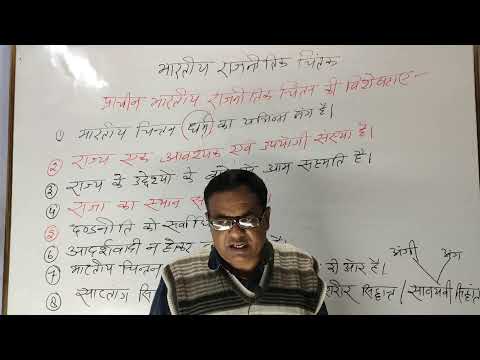 भारतीय राजनीतिक चिंतक
प्राचीन भारतीय राजनीतिक चिंतन की विशेषताएं -
① भारतीय चिन्तन धर्म का अभिन्न अंग है।
② राज्य एक आवश्यक एवं उपयोगी संस्था है।
③ राज्य के उद्देश्यों के आम सहमति है।
④ राजा का स्थान
⑤ दण्डनीति को
⑥ आदर्शवादी न होकर
⑦ भारतीय चिन्तन ओर है।
अंगी अंग
⑧ सप्तांग सिद्धान्त / सावयवी सिद्धांत